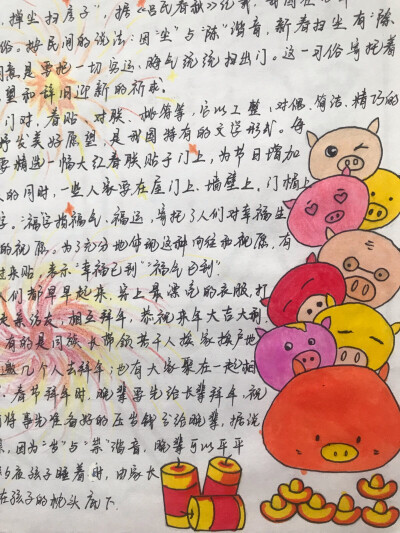 掸尘扫房子"据《吕氏春秋》记载,我国在
俗。按民间的说法:因"尘"与"陈"谐音,新春扫尘有"除
用意是要把一切穷运,晦气统统扫出门。这一习俗寄托着
望和辞旧迎新的祈求。
门对、春贴、对联、桃符等,它以工整、对偶、简洁、精巧的
抒发美好愿望,是我国特有的文学形式。每
要精选一幅大红春联贴于门上,为节日增加
人的同时,一些人家要在屋门上、墙壁上、门楣上
字。"福"字指福气、福运,寄托了人们对幸福生
的祝愿。为了充分地体现这种向往和祝愿,有
过来贴,表示"幸福已到""福气已到"
人们都早早起来,穿上最漂亮的衣服,打
走亲访友,相互拜年,恭祝来年大吉大利,
有的是同族长带领若干人挨家挨户地
邀几个人去拜年;也有大家聚在一起相
。春节拜年时,晚辈要先给长辈拜年,祝
可将事先准备好的压岁钱分给晚辈,据说
祟,因为"岁"与"祟"谐音,晚辈可以平平
夕夜孩子睡着时,由家长
在孩子的枕头底下.